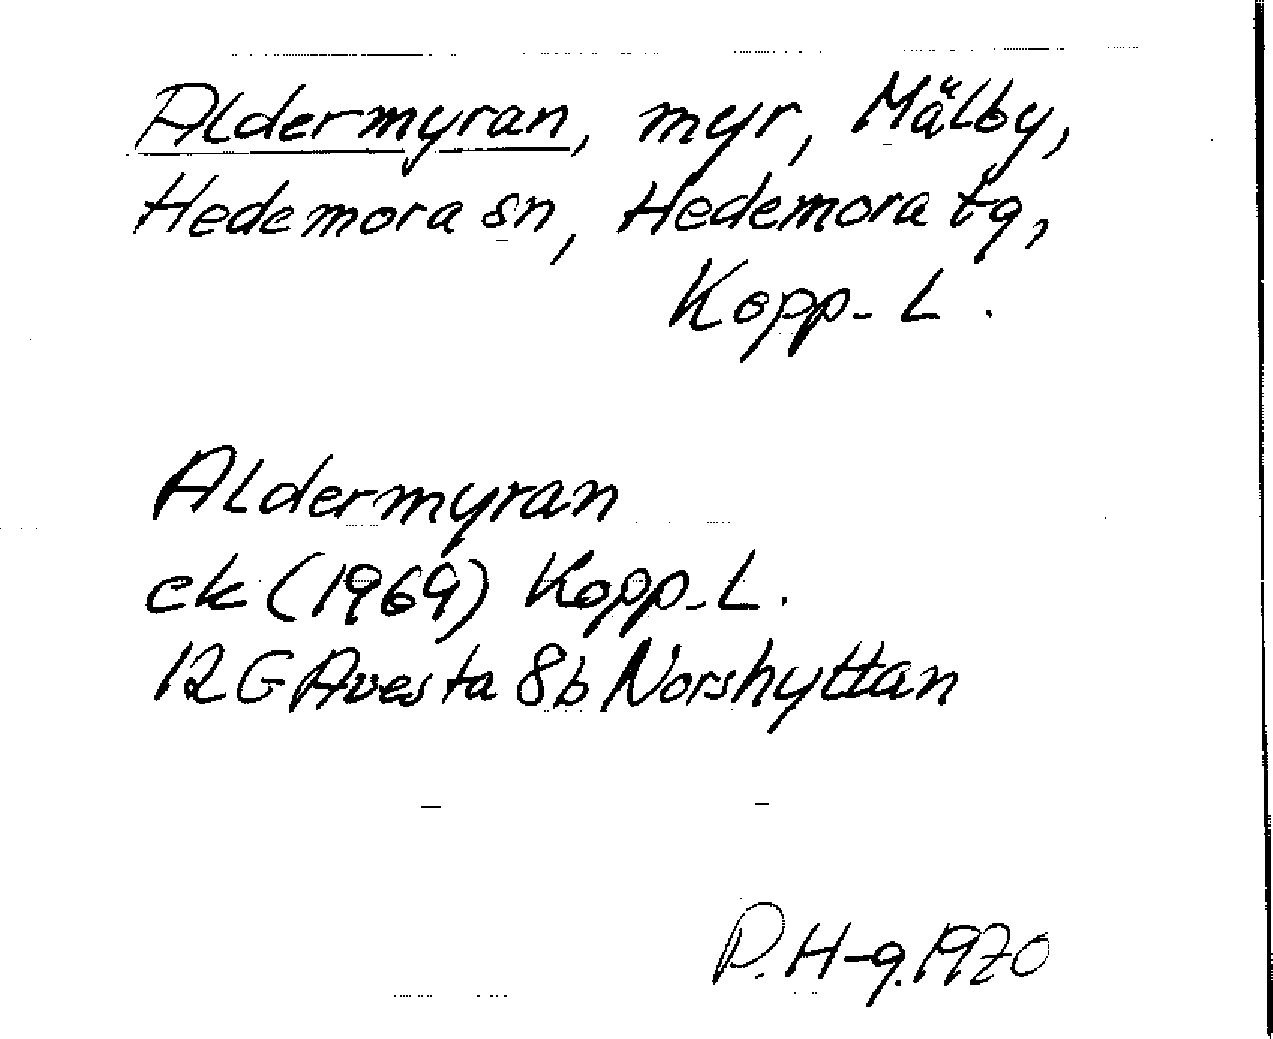 Aldermyran, myr, Mälby,
Hedemora sn, Hedemora tg,
Kopp-L.
Aldermyran
ek (1969) Kopp-L.
12 G Avesta 8b Norshyttan
P. H-g. 1970